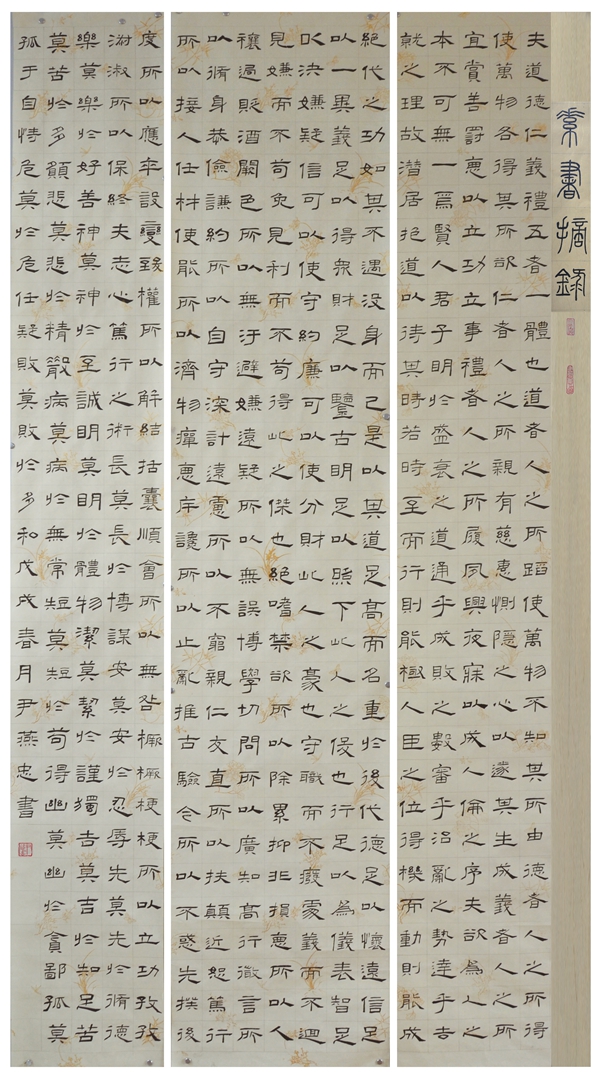 素書摘錄
夫道德仁義禮五者一體也道者人之所蹈使萬物不知其所由德者人之所得
使萬物各得其所欲仁者人之所親有慈惠惻隱之心以遂其生成義者人之所
宜賞善罰惡以立功立事禮者人之所履夙興夜寐以成人倫之序夫欲為人之
本不可無一焉賢人君子明於盛衰之道通乎成敗之數審乎治亂之勢達乎去
就之理故潛居抱道以待其時若時至而行則能極人臣之位得機而動則能成
絕代之功如其不遇沒身而已是以其道足高而名重於後代德足以懷遠信足
以一異義足以得衆財足以鑒古明足以照下此人之俊也行足以為儀表智足
以決嫌疑信可以使守約廉可以使分財此人之豪也守職而不廢處義而不迴
見嫌而不苟免見利而不苟得此之傑也絕嗜禁欲所以除累抑非損惡所以人
禳過貶酒闕色所以無汙避嫌遠疑所以無誤博學切問所以廣知高行微言所
以脩身恭儉謙約所以自守深計遠慮所以不窮親仁友直所以扶顛近恕篤行
所以接人任材使能所以濟物癉惡斥讒所以止亂推古驗今所以不惑先揆後
度所以應卒設變致權所以解結括囊順會所以無咎橛橛梗梗所以立功孜孜
淑淑所以保終夫志心篤行之術長莫長於博謀安莫安於忍辱先莫先於脩德
樂莫樂於好善神莫神於至誠明莫明於體物潔莫絜於謹獨吉莫吉於知足苦
莫苦於多願悲莫悲於精散病莫病於無常短莫短於苟得幽莫幽於貪鄙孤莫
孤于自恃危莫於危任疑敗莫敗於多和戊戌春月尹燕忠書